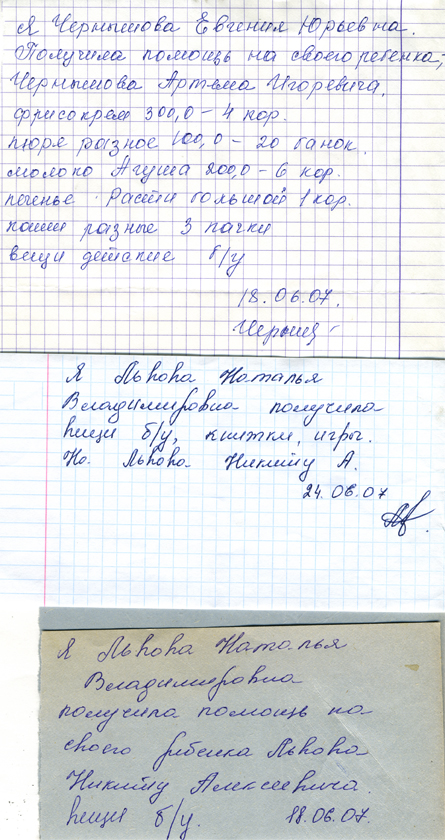 Я Чернышова Евгения Юрьевна.
Получила помощь на своего ребенка,
Чернышова Артема Игоревича,
фрисокрем 300,0 – 4 кор.
пюре разное 100,0 – 20 банок.
молоко Агуша 200,0 – 6 кор.
печенье Расти большой 1 кор.
каши разные 3 пачки
вещи детские б/у
18.06.07.
Черныш
Я Львова Наталья
Владимировна получила
вещи б/у, книжки, игры.
На Львова Никиту А.
24.06.07
Я Львова Наталья
Владимировна
получила помощь на
своего ребенка Львова
Никиту Алексеевича.
вещи б/у. 18.06.07.